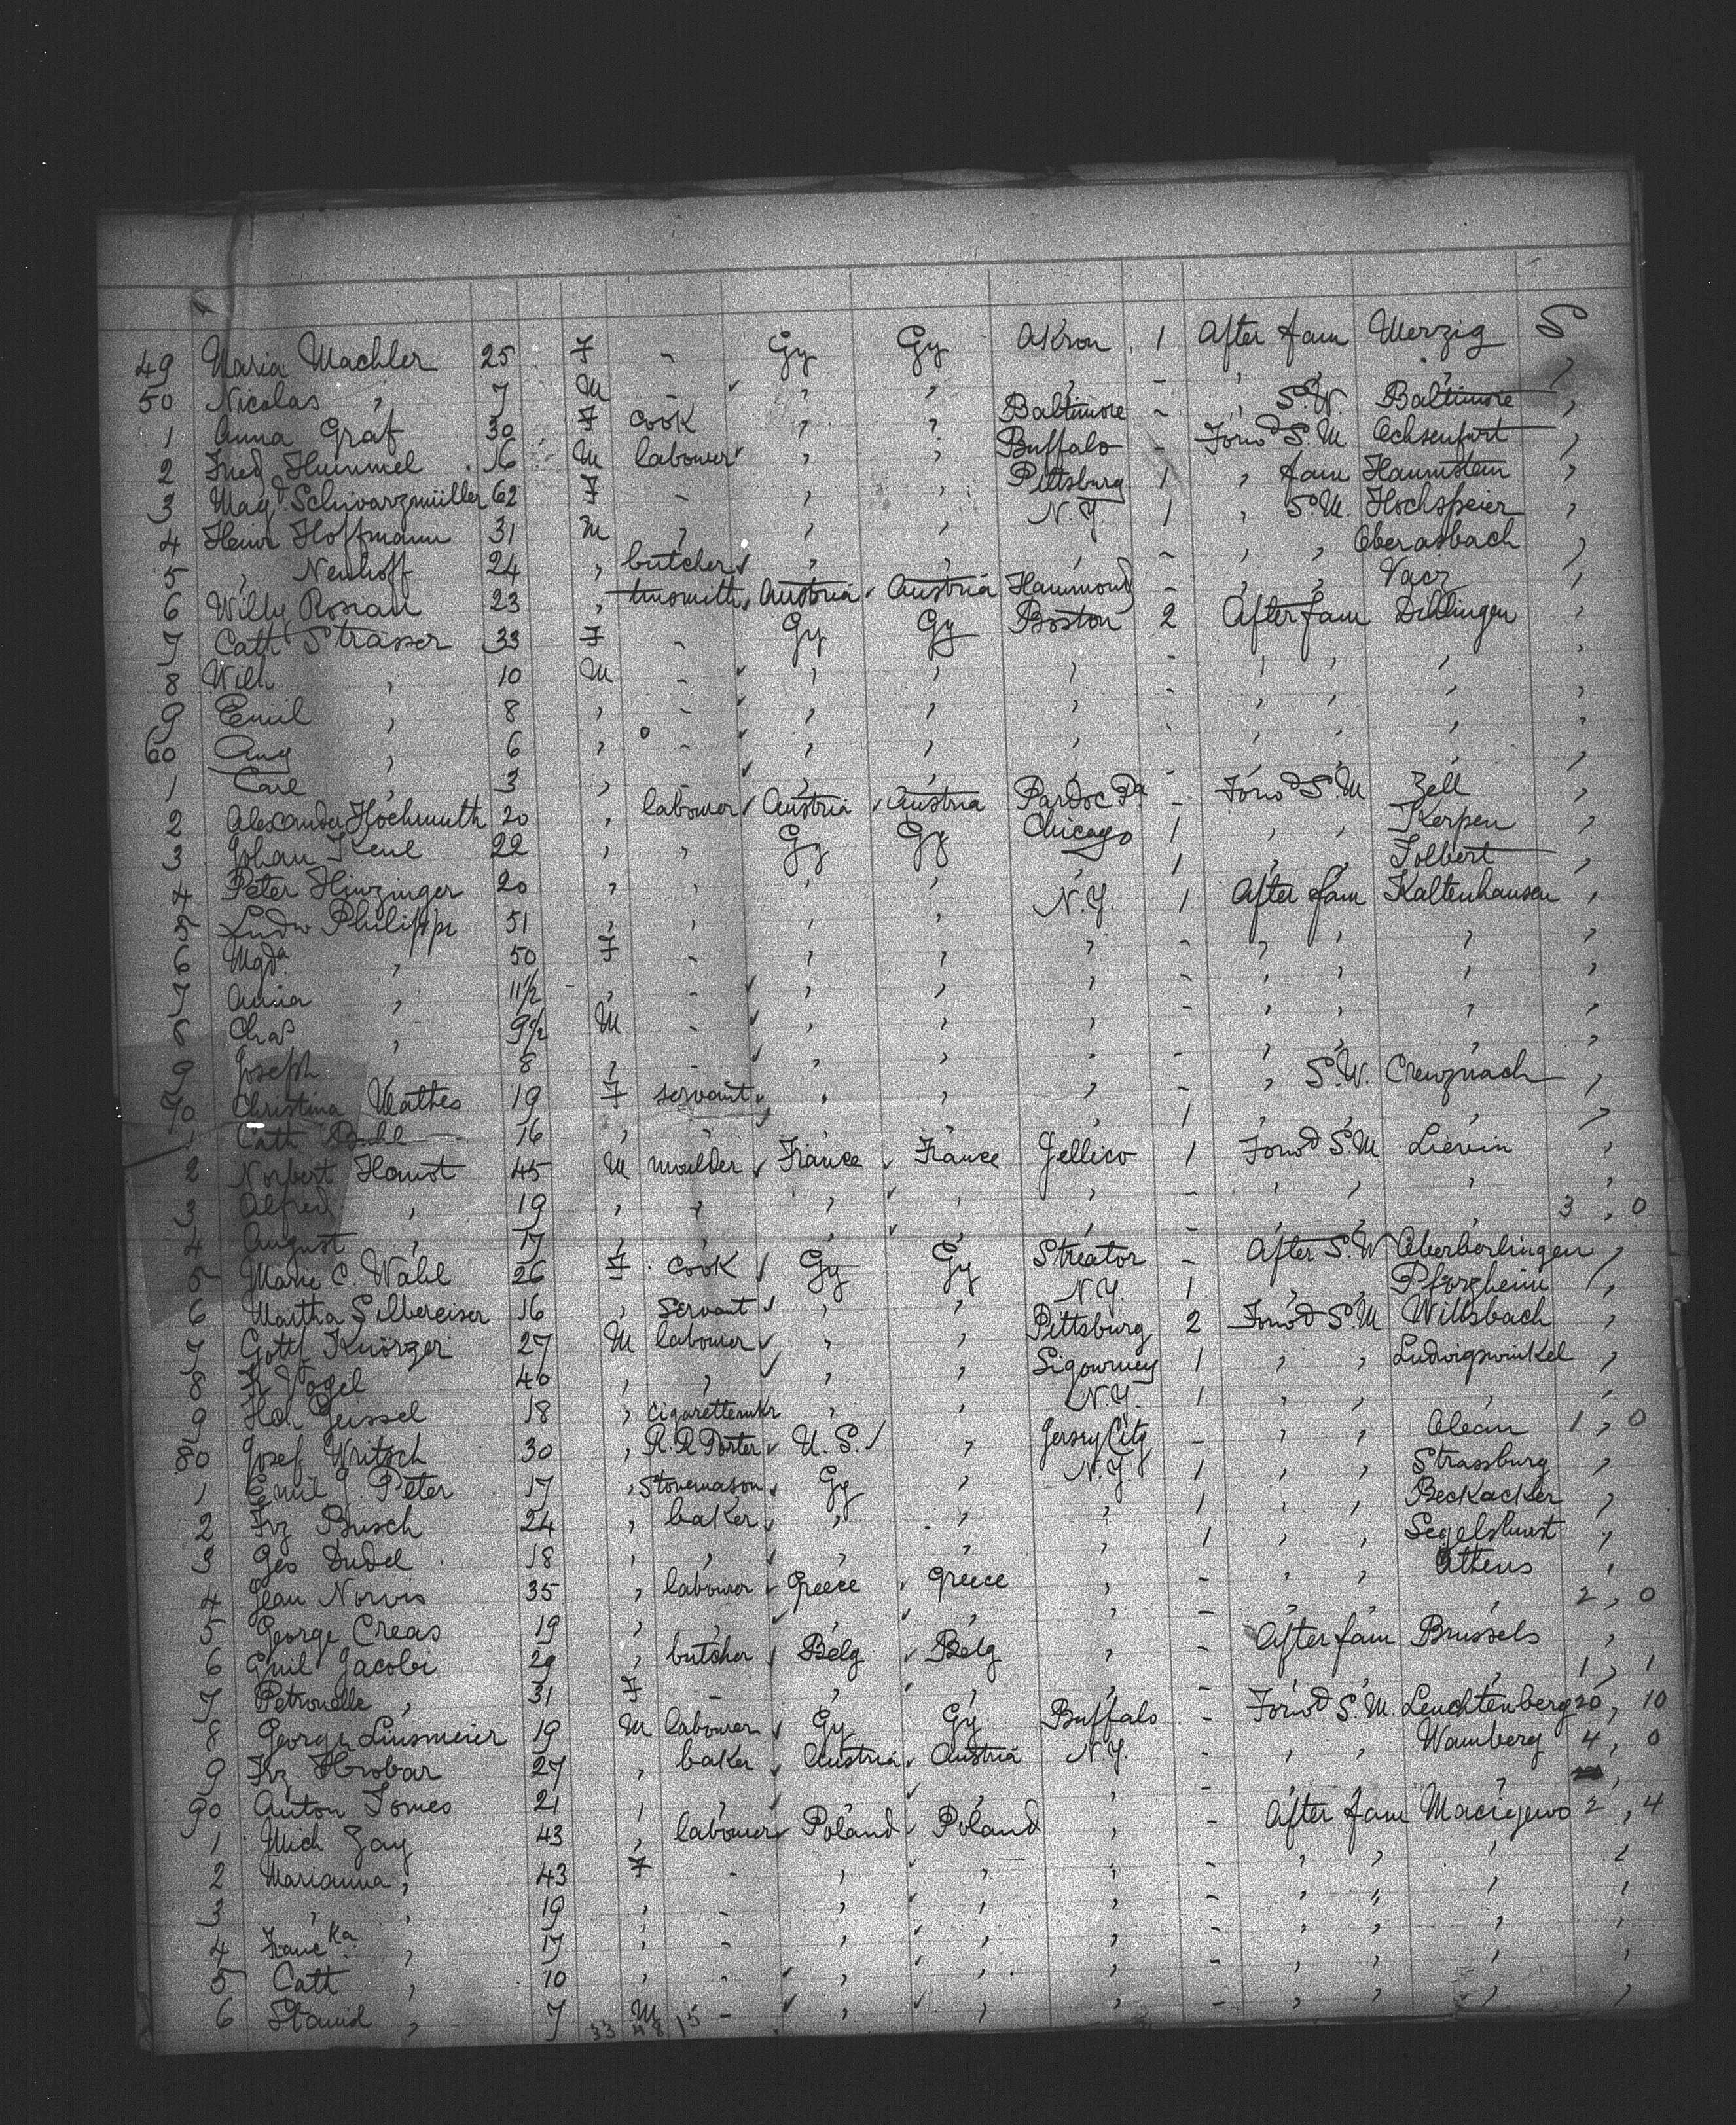 49 Maria Machler 25 F - Gy Gy Akron 1 After fam Merzig S
50 Nicolas " 7 M - " " " - " " " "
1 Anna Graf 30 F cook " " Baltimore - " S.W. Baltimore "
2 Fried Hummel 16 M labourer " " Buffalo - Forwd S.M Ochsenfurt "
3 Magd Schwarzmüller 62 F - " " Pittsburg 1 " fam Hammstein "
4 Heinr Hoffmann 31 M " " " N.Y. 1 " S.M. Hochspeier "
5 " Neuhoff 24 " butcher " " " - " " Oberasbach "
6 Willy Rosian 23 " tinsmith Austria Austria Hammond - " " Vacz "
7 Cath Strasser 33 F - Gy Gy Boston 2 After fam Dillingen "
8 Wilh " 10 M - " " " - " " " "
9 Emil " 8 " - " " " - " " " "
60 Aug " 6 " - " " " - " " " "
1 Carl " 3 " - " " " - " " " "
2 Alexander Hochmuth 20 " labourer Austria Austria Pardoc Pa - Forwd S.M Zell "
3 Johan Keul 22 " " Gy Gy Chicago 1 " " Kerpen "
4 Peter Hinzinger 20 " " " " " 1 " " Tolbert "
5 Ludw Philippi 51 " " " " N.Y. 1 After fam Kaltenhausen "
6 Mgda " 50 F - " " " - " " " "
7 Anna " 11/2 " - " " " - " " " "
8 Chas " 9/2 M - " " " - " " " "
9 Joseph " 8 " - " " " - " " " "
70 Christina Mathes 19 F servant " " " - " S.W. Creuznach "
1 Cath Buhl 16 " " " " " 1 " " " "
2 Norbert Hanot 45 M moulder France France Jellico 1 Forwd S.M. Lievin "
3 Alfred " 19 " " " " " - " " " "
4 August " 17 " " " " " - " " " 3 " 0
5 Marie C. Wahl 26 F cook Gy Gy Streator - After S.W Oberborlingen "
6 Martha Silbereiser 16 " servant " " N.Y. 1 " " Pforzheim "
7 Gottf Knörzer 27 M labourer " " Pittsburg 2 Forwd S.M Willsbach "
8 Fr Vogel 40 " " " " Sigourney 1 " " Ludwigswinkel "
9 Hch Geissel 18 " cigarettemkr " " N.Y. 1 " " " "
80 Josef Writsch 30 " R.R Porter U.S. " Jersey City - " " Olean 1 " 0
1 Emil J. Peter 17 " Stonemason Gy " N.Y. 1 " " Strassburg "
2 Frz Busch 24 " baker " " " 1 " " Beckacker "
3 Geo Dudel 18 " " " " " 1 " " Segelshurst "
4 Jean Norvis 35 " labourer Greece Greece " - " " Athens "
5 George Creas 19 " " " " " - " " " 2 " 0
6 Emil Jacobi 29 " butcher Belg Belg " - After fam Brussels "
7 Petronelle " 31 F - " " " - " " " 1 " 1
8 George Linsmeier 19 M labourer Gy Gy Buffalo - Forwd S.M. Leuchtenberg 20 " 10
9 Frz Hrobar 27 " baker Austria Austria N.Y. - " " Wamberg 4 " 0
90 Anton Tomes 21 " " " " " - " " " "
1 Mich Zay 43 " labourer Poland Poland " - After fam Maciejewo 2 " 4
2 Marianna " 43 F - " " " - " " " "
3 " " 19 " - " " " - " " " "
4 Francka " 17 " - " " " - " " " "
5 Cath " 10 " - " " " - " " " "
6 Stanisl " 7 M - " " " - " " " "
33 48 15